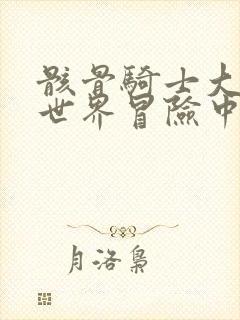 骸骨騎士大
世界冒險中
月洛梟